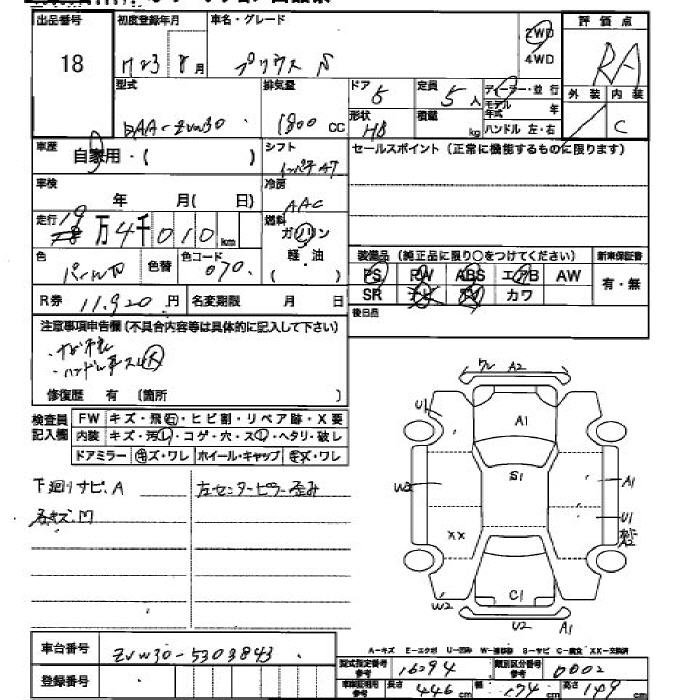 出品番号 初度登録年月 車名・グレード 2WD 4WD 評価点
18 H23 8月 プリウス S RA
型式 排気量 ドア 定員 ディーラー・並行 外装 内装
DAA-ZVW30 1800 CC 5 5人 モデル年式 年 C
形状 HB 積載 kg ハンドル 左・右
車歴 自家用・( ) シフト セールスポイント (正常に機能するものに限ります)
車検 年 月( 日) 冷房 AAC
走行 19万4千010km 燃料 ガソリン
色 色替 色コード 070 軽・油 装備品 (純正品に限り○をつけてください) 新車保証書
PS PW ABS エアB AW 有・無
SR カワ
R券 11,920円 名変期限 月 日 後日品
注意事項申告欄(不具合内容等は具体的に記入して下さい)
修復歴 有 (箇所 )
検査員記入欄 FW キズ・飛石・ヒビ割・リペア跡・X要
内装 キズ・汚レ・コゲ・穴・スレ・ヘタリ・破レ
ドアミラー キズ・ワレ ホイール・キャップ キズ・ワレ
下廻りサビ.A 左センターピラー歪み
ワレ A2
U1 A1
S1
W2 A1
U1
XX
C1
W2 U2 A1
A-キズ E-エクボ U-凹み W-補修跡 S-サビ C-腐食 XX-交換済
車台番号 ZVW30-5303843
型式指定番号 参考 16294 類別区分番号 参考 0002
登録番号 車検証明用 参考 長さ 446cm 幅 174cm 高さ 149cm